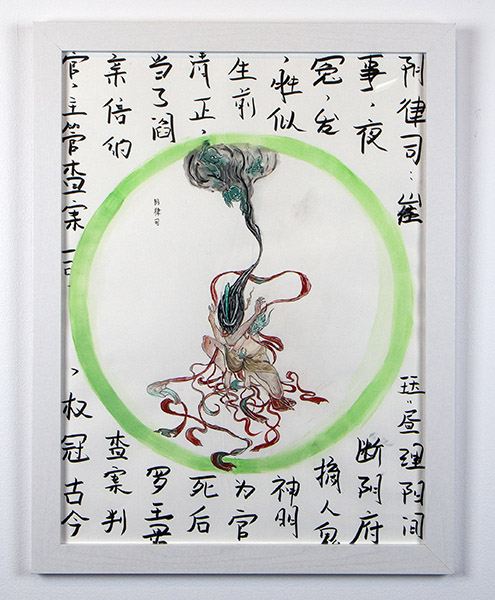 阴律司：崔珏：昼理阳间
事，夜断阴府
冤，发摘人鬼
，胜似神明
生前为官
清正，死后
当了阎罗王
亲倍的查案判
官，主管查案司，权冠古今
阴律司